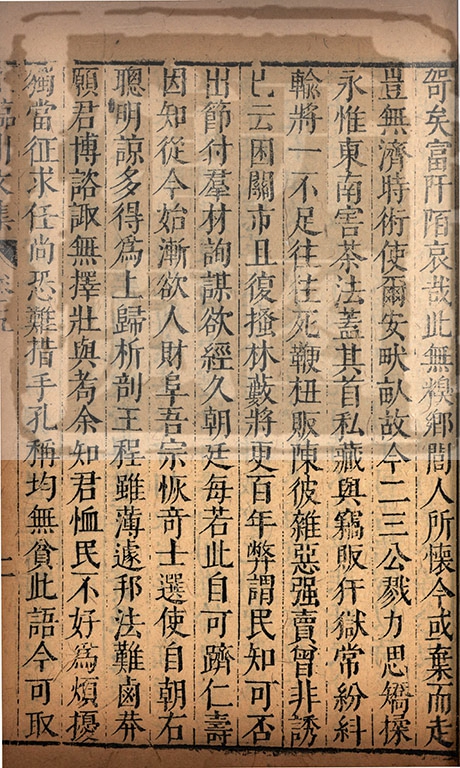 哿矣富阡陌哀哉此無糗鄉閭人所懷今或棄而走
豈無濟時術使爾安畎畝故今二三公戮力思矯揉
永惟東南害茶法蓋其首私藏與竊販犴獄常紛糾
輸將一不足往往死鞭杻販陳彼雜惡强賣曾非誘
已云困關市且復搔林藪將更百年弊謂民知可否
出節付羣材詢謀欲經久朝廷每若此自可躋仁壽
因知從今始漸欲人財阜吾宗恢竒士選使自朝右
聰明諒多得爲上歸析剖王程雖薄遽邦法難鹵莽
願君博諮諏無擇壯與耇余知君恤民不好爲煩擾
獨當征求任尚恐難措手孔稱均無貧此語今可取
臨川文集 卷五 二